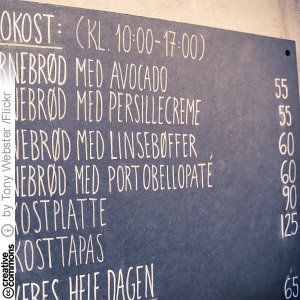 OKOST: (KL. 10:00-17:00)
RNEBRØD MED AVOCADO 55
NEBRØD MED PERSILLECREME 55
NEBRØD MED LINSEBØFFER 60
NEBRØD MED PORTOBELLOPATÉ 60
KOSTPLATTE 90
KOSTTAPAS 125
VERES HELE DAGEN
65
by Tony Webster /Flickr
creative commons